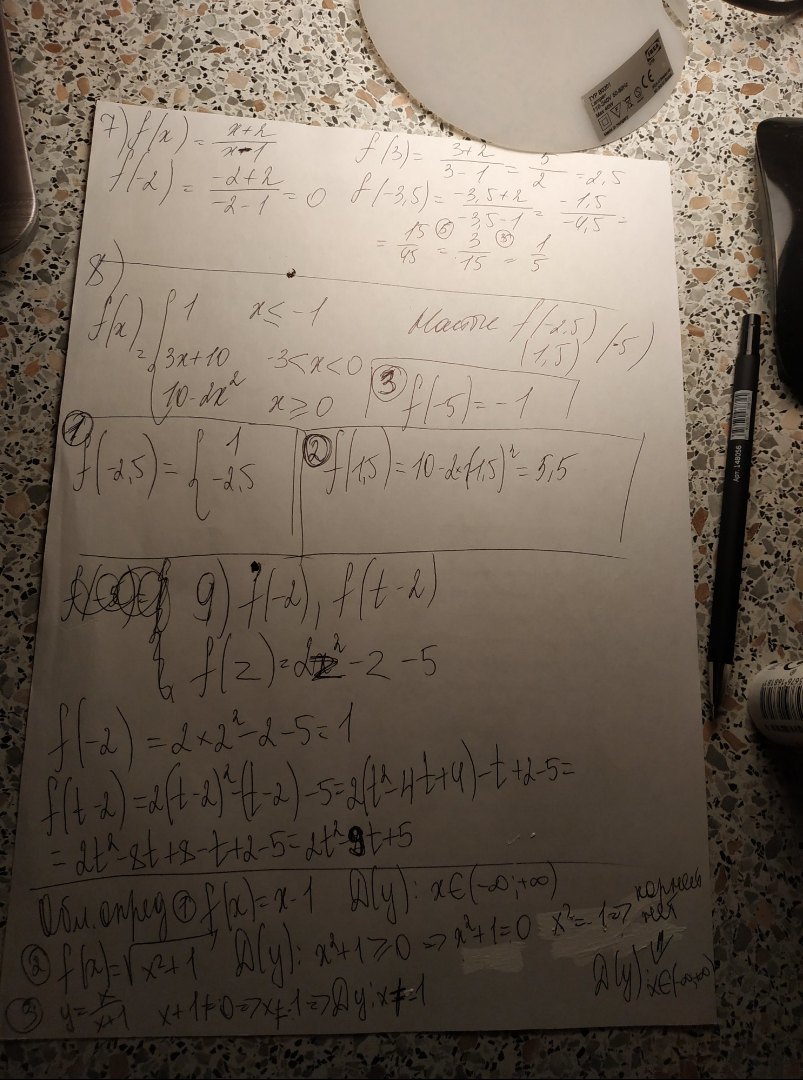 7) f(x) = (x+2)/(x-1)   f(3) = (3+2)/(3-1) = 5/2 = 2,5
f(-2) = (-2+2)/(-2-1) = 0   f(-3,5) = (-3,5+2)/(-3,5-1) = (-1,5)/(-4,5) =
= 15/45 (5) = 3/15 (3) = 1/5
8)
f(x) = { 1   x ≤ -1   f(-2,5)
3x+10   -3<x<0   (1,5) (-5)
10-2x²   x ≥ 0
③ f(-5) = -1
① f(-2,5) = { 1
-2,5
② f(1,5) = 10-2×(1,5)² = 5,5
9) f(-2), f(t-2)
f(z) = 2z² - z - 5
f(-2) = 2×2²-2-5=1
f(t-2) = 2(t-2)²-(t-2)-5=2(t²-4t+4)-t+2-5=
= 2t²-8t+8-t+2-5=2t²-9t+5
Обл. опред ① f(x)=x-1   D(y): x∈(-∞;+∞)
② f(x)=√x²+1   D(y): x²+1≥0 => x²+1=0   x²=-1=> корней
нет
D(y): x∈(-∞;+∞)
③ y=x/(x+1)   x+1≠0=>x≠-1=>Dy: x≠-1
IKEA
CE
Арт. 148056